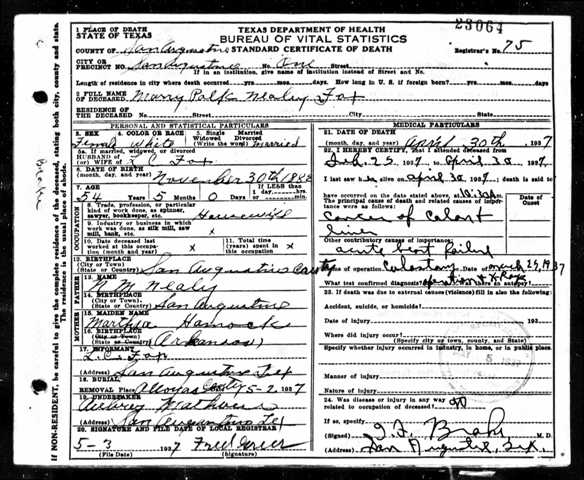 23064
TEXAS DEPARTMENT OF HEALTH
BUREAU OF VITAL STATISTICS
STANDARD CERTIFICATE OF DEATH
1 PLACE OF DEATH
STATE OF TEXAS
COUNTY OF San Augustine
Registrar's No. 75
CITY OR PRECINCT NO. San Augustine No. One Street
If in an institution, give name of institution instead of Street and No.
Length of residence in city where death occurred yrs. mos. days. How long in U. S. if foreign born? yrs. mos. days
2 FULL NAME OF DECEASED Mary Polk Nealy Fox
RESIDENCE OF THE DECEASED Street No. City State
PERSONAL AND STATISTICAL PARTICULARS
3. SEX 4. COLOR OR RACE 5. Single Married Widowed Divorced (Write the word)
Female White Married
5a. If married, widowed, or divorced
HUSBAND OF (or) WIFE OF L C Fox
6. DATE OF BIRTH (month, day, and year) November 30th
7. AGE If LESS than 1 day, hrs. min.
54 Years 5 Months 0 Days
OCCUPATION
8. Trade, profession, or particular kind of work done, as spinner, sawyer, bookkeeper, etc. Housewife
9. Industry or business in which work was done, as silk mill, saw mill, bank, etc. x
10. Date deceased last worked at this occupation (month and year) x
11. Total time (years) spent in this occupation x
12. BIRTHPLACE (City or Town) (State or Country) San Augustine County
FATHER
13. NAME N. M. Nealy
14. BIRTHPLACE (City or Town) (State or Country) San Augustine
MOTHER
15. MAIDEN NAME Martha
16. BIRTHPLACE (City or Town) (State or Country) Arkansas
17. INFORMANT L. C. Fox
(Address) San Augustine Tex
18. BURIAL REMOVAL Place Date 5-2 1937
19. UNDERTAKER
(Address) San Augustine Tex
20. SIGNATURE AND FILE DATE OF LOCAL REGISTRAR
5-3 1937
(File Date) (Signature)
MEDICAL PARTICULARS
21. DATE OF DEATH (month, day, and year) April 30th, 1937
22. I HEREBY CERTIFY, that I attended deceased from
Feb. 25 1937 to April 30 1937
I last saw h alive on April 30 1937 death is said to
have occurred on the date above, at
The principal cause of death and related causes of importance were as follows: Date of Onset
Cancer of
liver
Other contributory causes of importance:
acute heart failure
Name of operation Colostomy Date of March 25, 1937
What test confirmed diagnosis? operation X Ray Was there an autopsy?
23. If death was due to external causes (violence) fill in also the following:
Accident, suicide, or homicide?
Date of injury 193
Where did injury occur?
Specify whether injury occurred in industry, in home, or in public place
Manner of injury
Nature of injury
24. Was disease or injury in any way related to occupation of deceased? no
If so, specify
(Signed) M. D.
(Address) San Augustine, Tex.